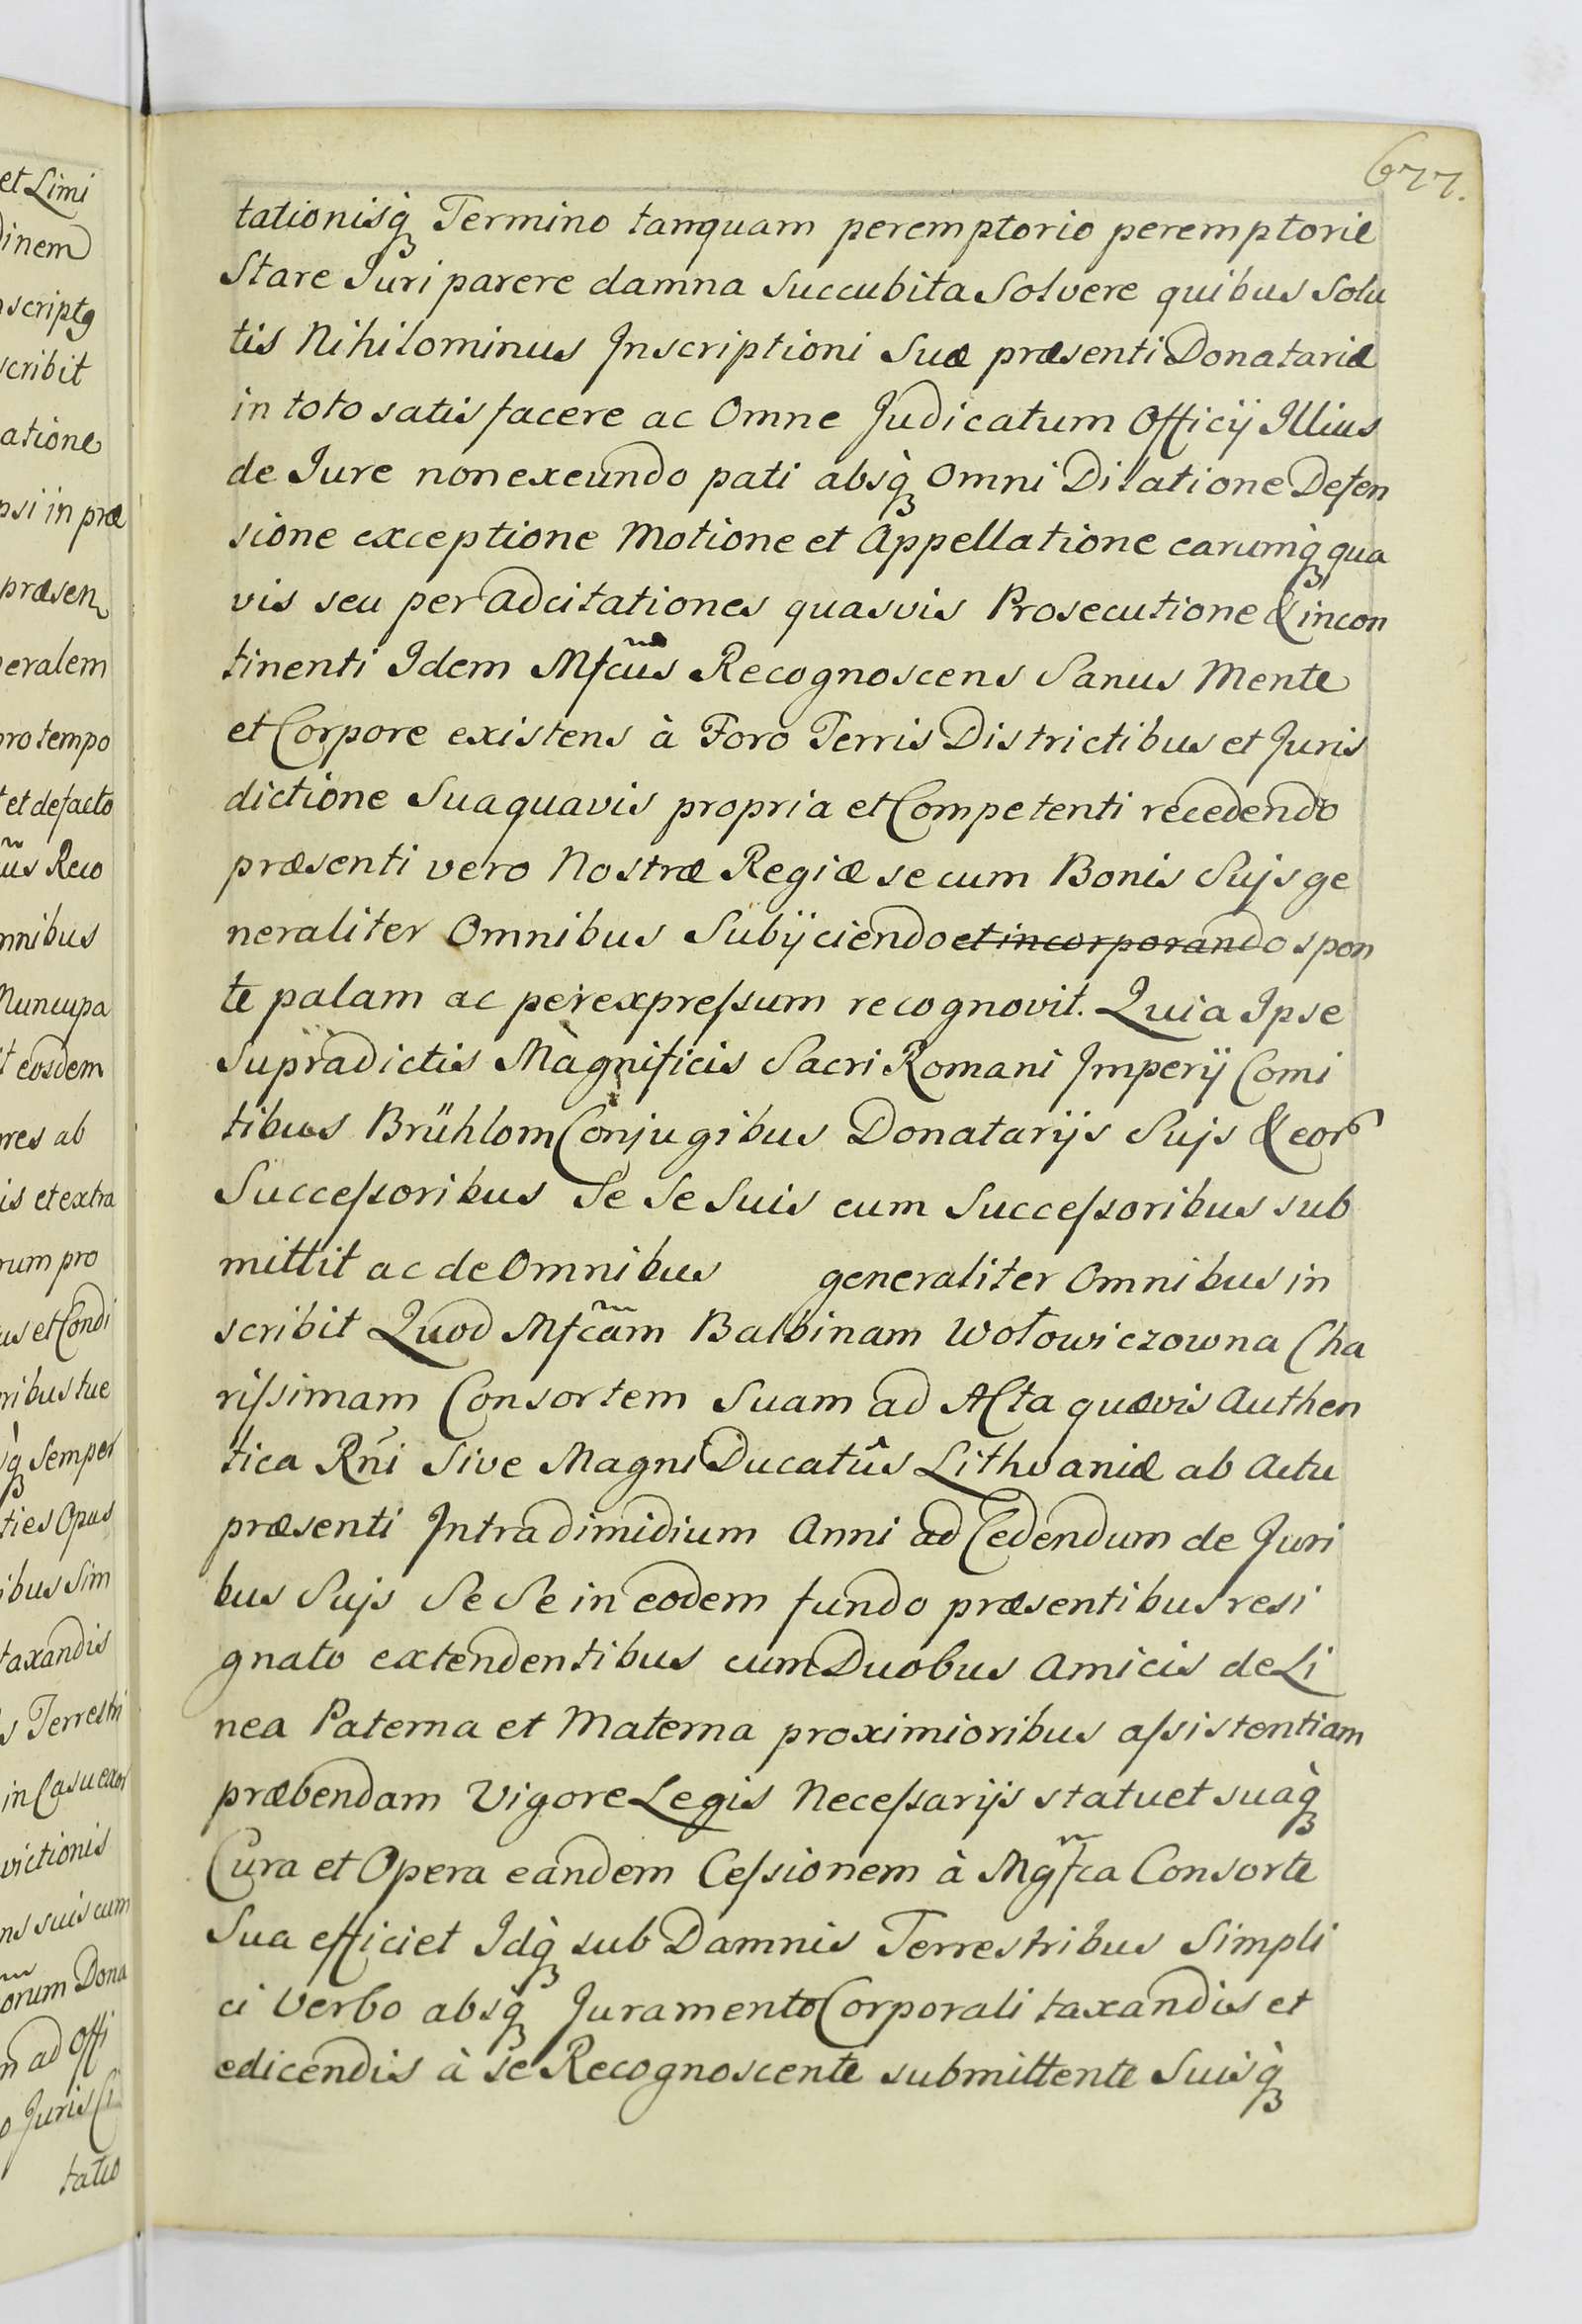 677.
tationisq́ Termino tanquam peremptorio peremptorie
Stare Juri parere damna Succubita Solvere quibus Solu
tis Nihilominus Inscriptioni Suæ præsenti Donatariæ
in toto satisfacere ac Omne Judicatum Officij Illius
de Jure non exeundo pati absq́ Omni Dilatione Defen
sione exceptione Motione et Appellatione earumq́ qua
vis seu per adcitationes quasvis Prosecutione & incon
tinenti Idem Mfcus Recognoscens Sanus Mente
et Corpore existens à Foro Terris Districtibus et Juris
dictione Suaquavis propria et Competenti recedendo
præsenti vero Nostræ Regiæ se cum Bonis Suijs ge
neraliter Omnibus Subijciendo et incorporando spon
te palam ac per expreſsum recognovit. Quia Ipse
Supradictis Magnificis Sacri Romani Imperij Comi
tibus Brühlom Conjugibus Donatarijs Suijs & eor
Succeſsoribus Se Se Suis cum Succeſsoribus sub
mittit ac de Omnibus generaliter Omnibus in
scribit Quod Mfcam Balbinam Wołowiczowna Cha
riſsimam Consortem Suam ad Acta quævis Authen
tica Rni Sive Magni Ducatûs Lithvaniæ ab Actu
præsenti Intra dimidium Anni ad Cedendum de Juri
bus Suijs Se Se in eodem fundo præsentibus resi
gnato extendentibus cum Duobus Amicis de Li
nea Paterna et Materna proximioribus aſsistentiam
præbendam Vigore Legis Neceſsarijs statuet suaq́
Cura et Opera eandem Ceſsionem à Mgfca Consorte
Sua efficiet Idq́ sub Damnis Terrestribus Simpli
ci Verbo absq́ Juramento Corporali taxandis et
edicendis à se Recognoscente submittente Suisq́